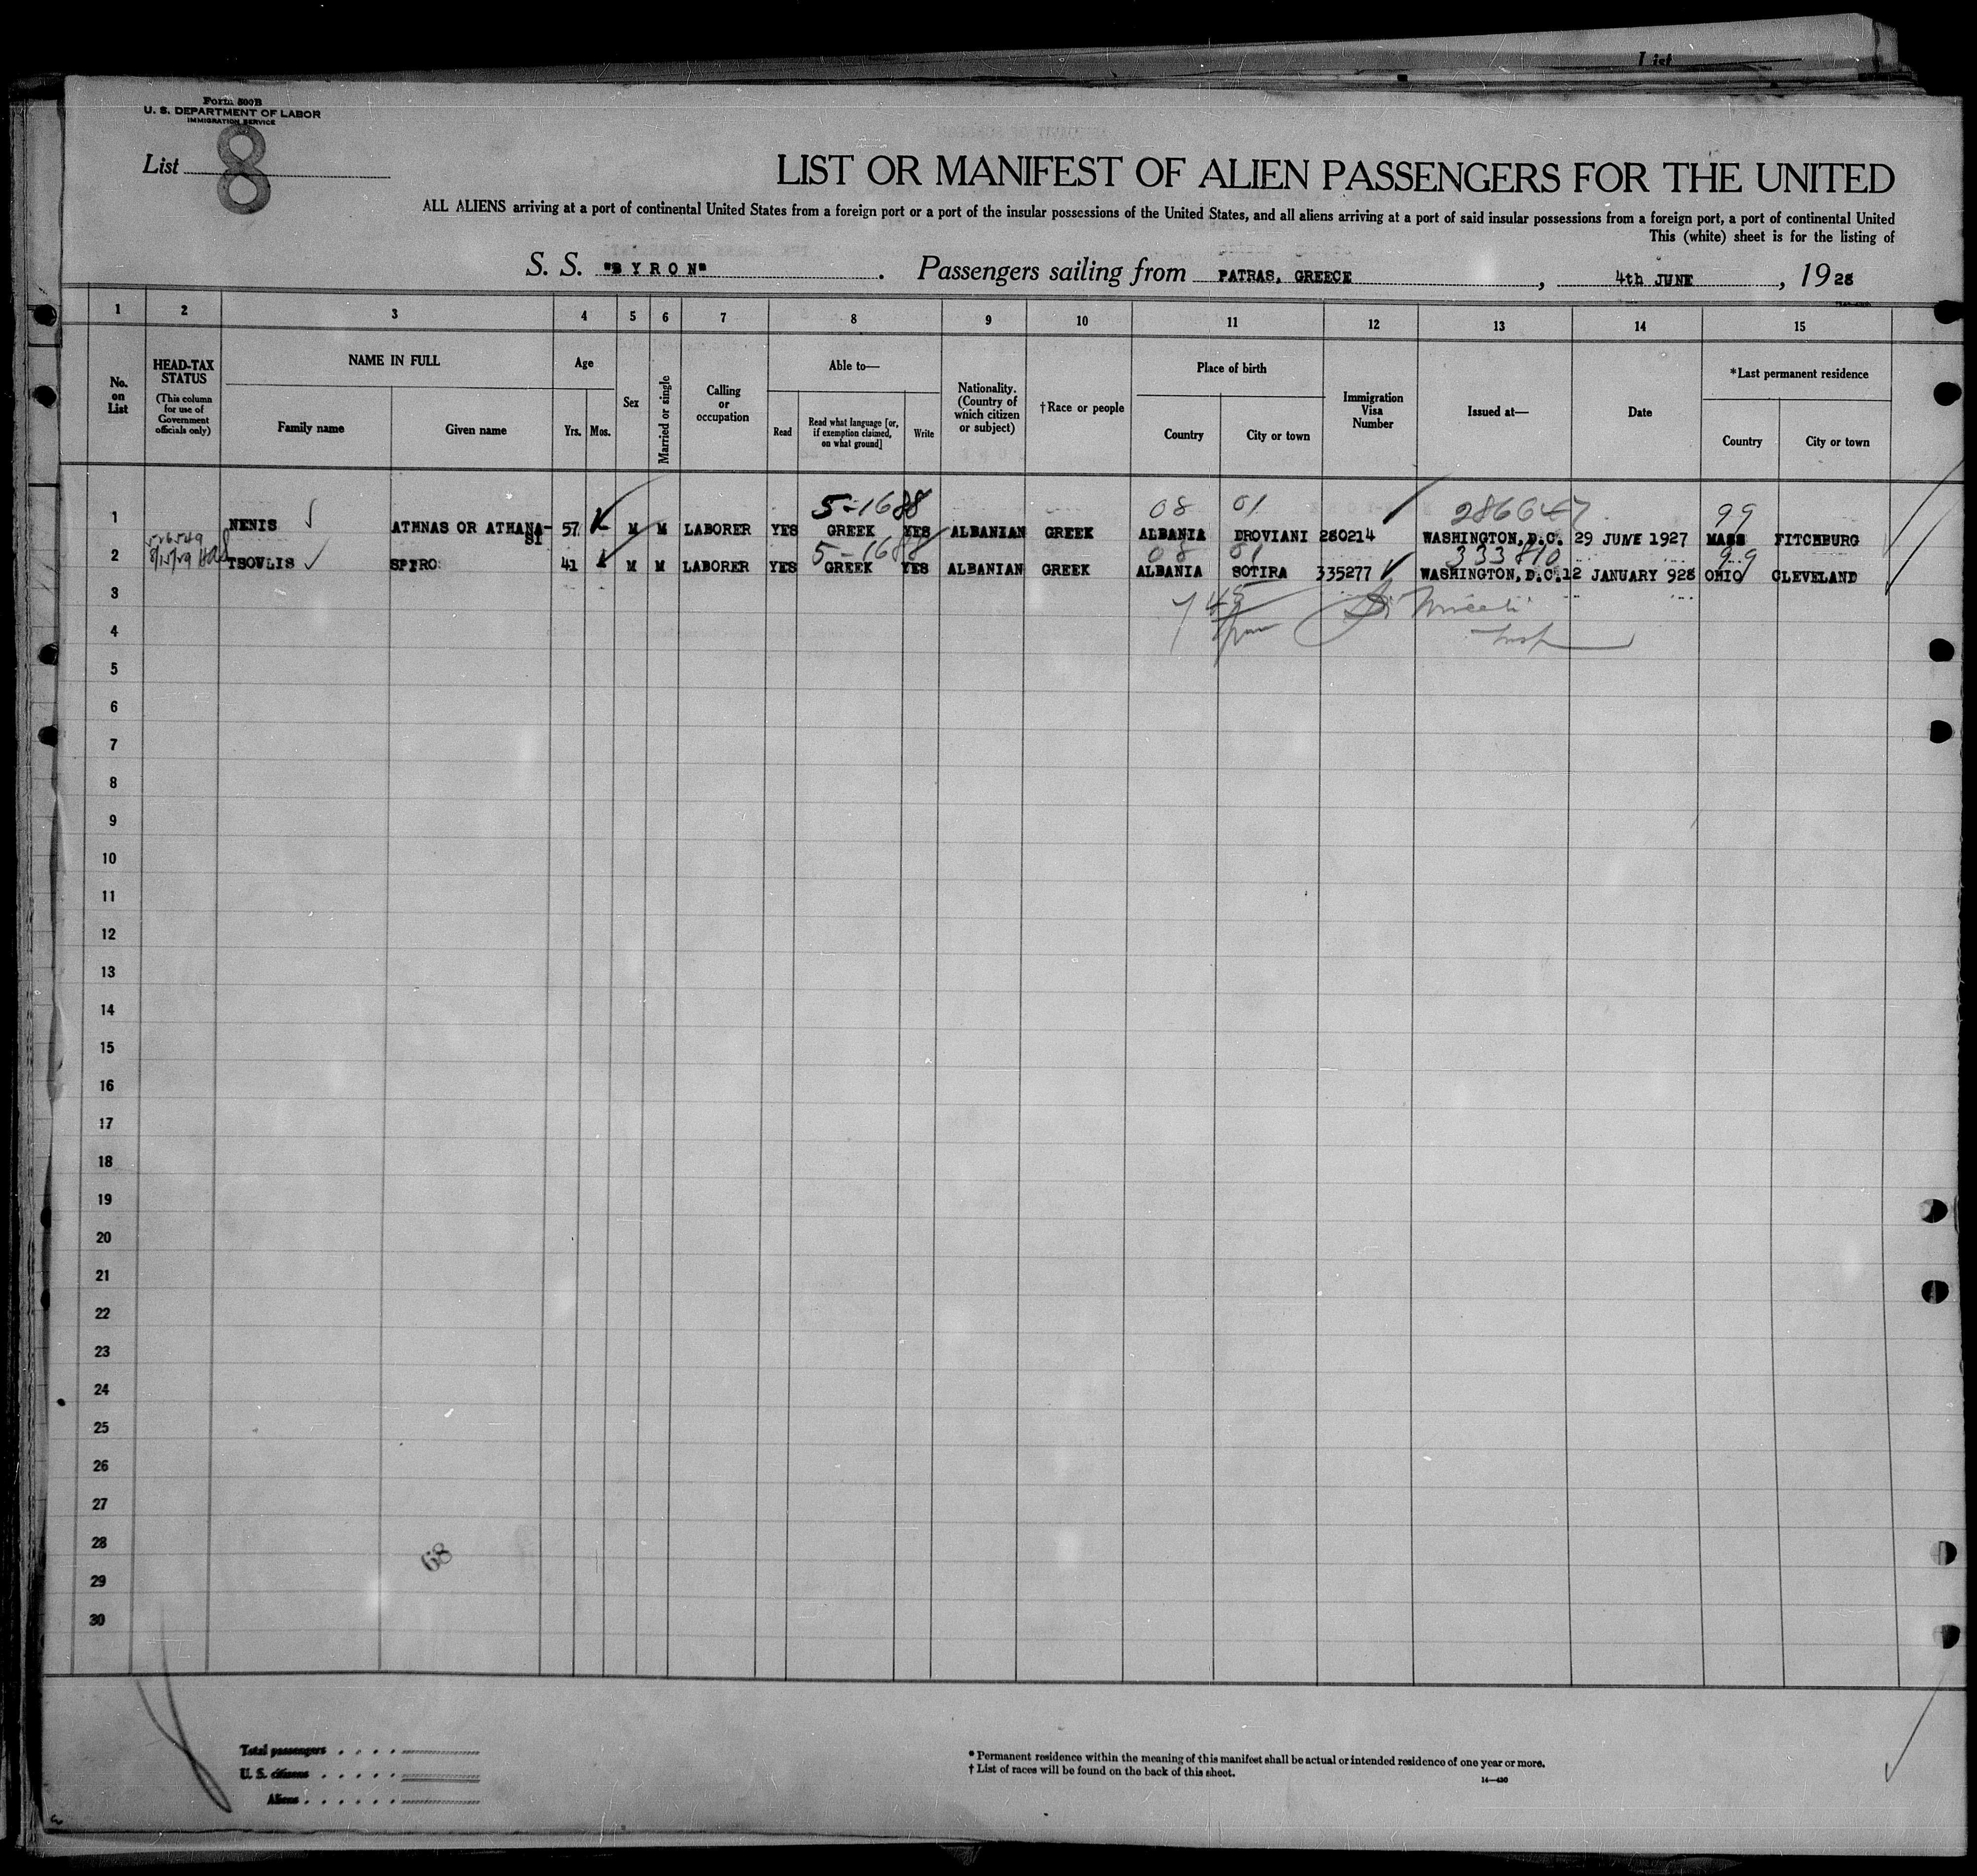 List
Form 500B
U. S. DEPARTMENT OF LABOR
IMMIGRATION SERVICE
List 8
LIST OR MANIFEST OF ALIEN PASSENGERS FOR THE UNITED
ALL ALIENS arriving at a port of continental United States from a foreign port or a port of the insular possessions of the United States, and all aliens arriving at a port of said insular possessions from a foreign port, a port of continental United
This (white) sheet is for the listing of
S. S. "BYRON". Passengers sailing from PATRAS, GREECE, 4th JUNE, 1928
1 2 3 4 5 6 7 8 9 10 11 12 13 14 15
No. on List
HEAD-TAX STATUS
(This column for use of Government officials only)
NAME IN FULL
Family name
Given name
Age
Yrs.
Mos.
Sex
Married or single
Calling or occupation
Able to—
Read
Read what language [or, if exemption claimed, on what ground]
Write
Nationality. (Country of which citizen or subject)
†Race or people
Place of birth
Country
City or town
Immigration Visa Number
Issued at—
Date
*Last permanent residence
Country
City or town
5-1688 08 01 286647 99
1 NENIS ATHNAS OR ATHANA-SI 57 M M LABORER YES GREEK YES ALBANIAN GREEK ALBANIA DROVIANI 280214 WASHINGTON, D.C. 29 JUNE 1927 MASS FITCHBURG
526549 5-1688 08 01 333810 99
2 8/15/29 TSOVLIS SPIRO 41 M M LABORER YES GREEK YES ALBANIAN GREEK ALBANIA SOTIRA 335277 WASHINGTON, D.C. 12 JANUARY 928 OHIO CLEVELAND
3
4
5
6
7
8
9
10
11
12
13
14
15
16
17
18
19
20
21
22
23
24
25
26
27
28
29
30
68
Total passengers
U. S. citizens
Aliens
* Permanent residence within the meaning of this manifest shall be actual or intended residence of one year or more.
† List of races will be found on the back of this sheet.
14—430